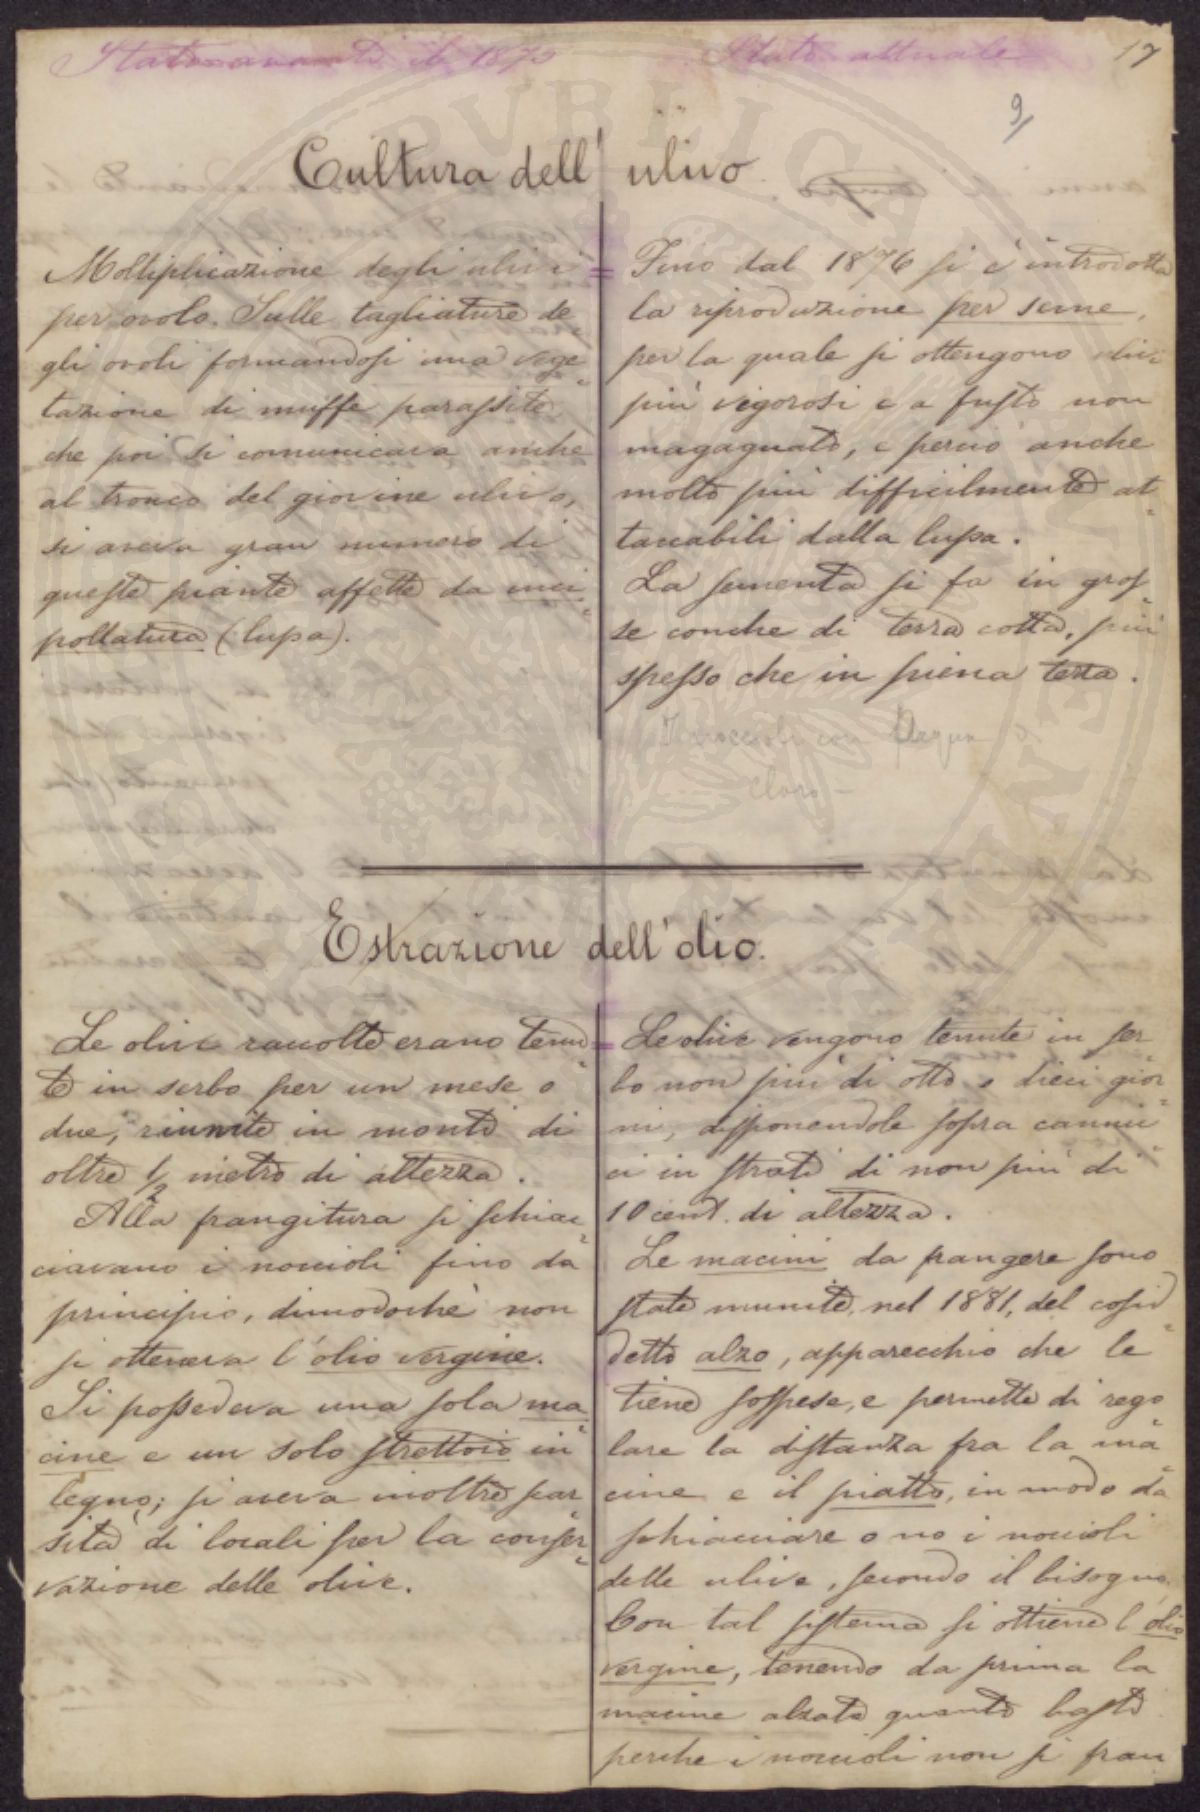 Stato avanti il 1875
Stato attuale
17
9
Cultura dell'ulivo.
Moltiplicazione degli ulivi
per ovolo. Sulle tagliature de
gli ovoli formandosi una vege
tazione di muffe parassite
che poi si comunicava anche
al tronco del giovine ulivo,
si aveva gran numero di
queste piante affette da inci-
pollatura (lupa).
Fino dal 1876 si è introdotta
la riproduzione per seme,
per la quale si ottengono ulivi
più vigorosi e a fusto non
magagnato, e perciò anche
molto più difficilmente at-
taccabili dalla lupa.
La sementa si fa in gros-
se conche di terra cotta, più
spesso che in piena terra.
con Acqua
Estrazione dell'olio.
Le olive raccolte erano tenu-
te in serbo per un mese o
due, riunite in monti di
oltre 1/2 metro di altezza.
Alla frangitura si schiac-
ciavano i noccioli fino da
principio, dimodochè non
si otteneva l'olio vergine.
Si possedeva una sola ma-
cine e un solo strettoio in
legno; si aveva inoltre scar-
sità di locali per la conser-
vazione delle olive.
Le olive vengono tenute in ser
bo non più di otto o dieci gior-
ni, disponendole sopra cannic-
ci in strati di non più di
10 cent. di altezza.
Le macini da frangere sono
state munite, nel 1881, del cosid-
detto alzo, apparecchio che le
tiene sospese, e permette di rego
lare la distanza fra la ma-
cine e il piatto, in modo da
schiacciare o no i noccioli
delle ulive, secondo il bisogno.
Con tal sistema si ottiene l'olio
vergine, tenendo da prima la
macine alzata quanto basti
perche i noccioli non si fran